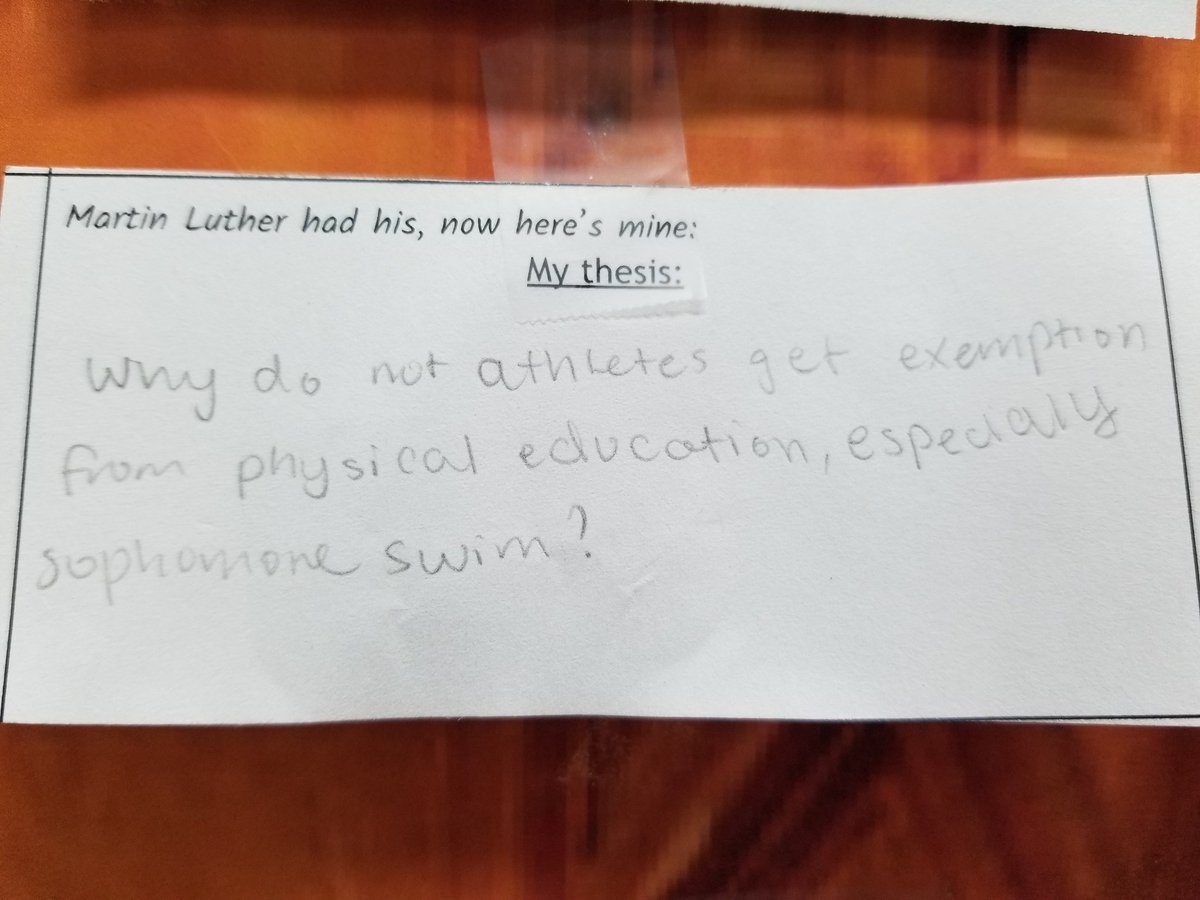 Martin Luther had his, now here's mine:
My thesis:
Why do not athletes get exemption
from physical education, especialy
sophomore swim?